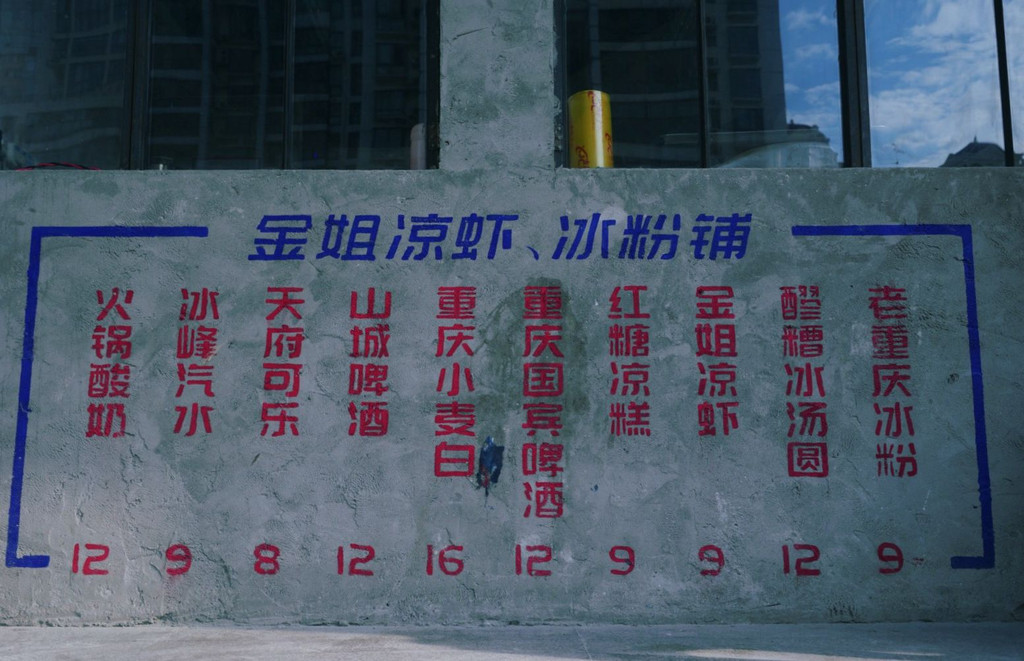 金姐凉虾、冰粉铺
火锅酸奶
12
冰峰汽水
9
天府可乐
8
山城啤酒
12
重庆小麦白
16
重庆国宾啤酒
12
红糖凉糕
9
金姐凉虾
9
醪糟冰汤圆
12
老重庆冰粉
9